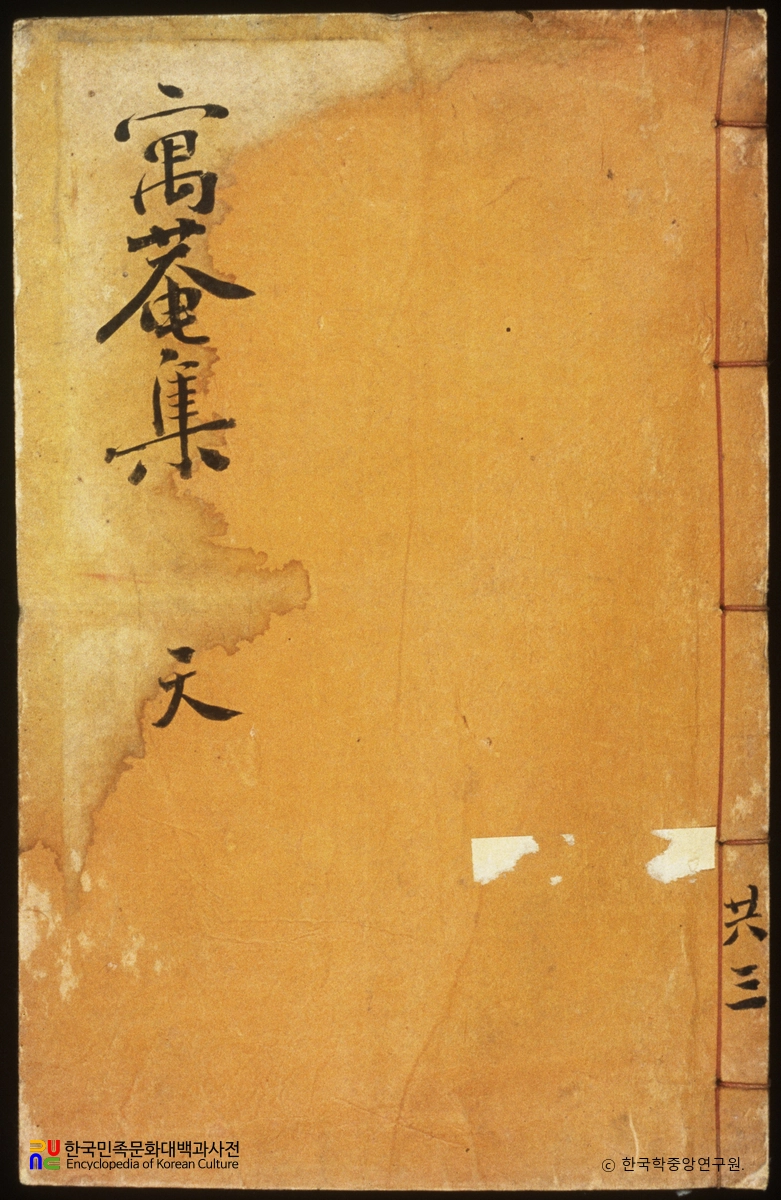 寓菴集
天
共三
한국민족문화대백과사전
Encyclopedia of Korean Culture
ⓒ 한국학중앙연구원.